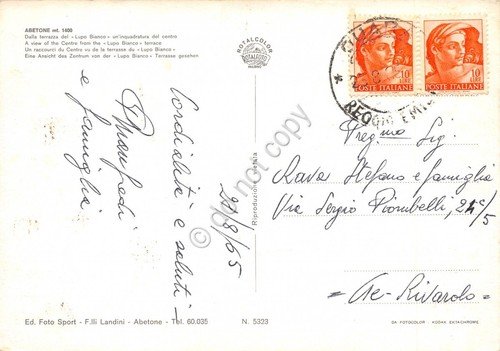 ABETONE mt. 1400
Dalla terrazza del «Lupo Bianco» un'inquadratura del centro
A view of the Centre from the «Lupo Bianco» terrace
Un raccourci du Centre vu de la terrasse du «Lupo Bianco»
Eine Ansicht des Zentrum von der «Lupo Bianco» Terrasse gesehen
ROTALCOLOR
ROTALFOTO
MILANO
10
POSTE ITALIANE
10
POSTE ITALIANE
REGGIO EMILIA
Cordialità e saluti
Manfredi
e famiglia
20/8/65
Riproduzione vietata
do not copy
Preg.mo Sig.
Rava Stefano e famiglia
Via Sergio Piombelli, 25c/5
Ge-Rivarolo
Ed. Foto Sport - F.lli Landini - Abetone - Tel. 60.035
N. 5323
DA FOTOCOLOR KODAK EKTACHROME